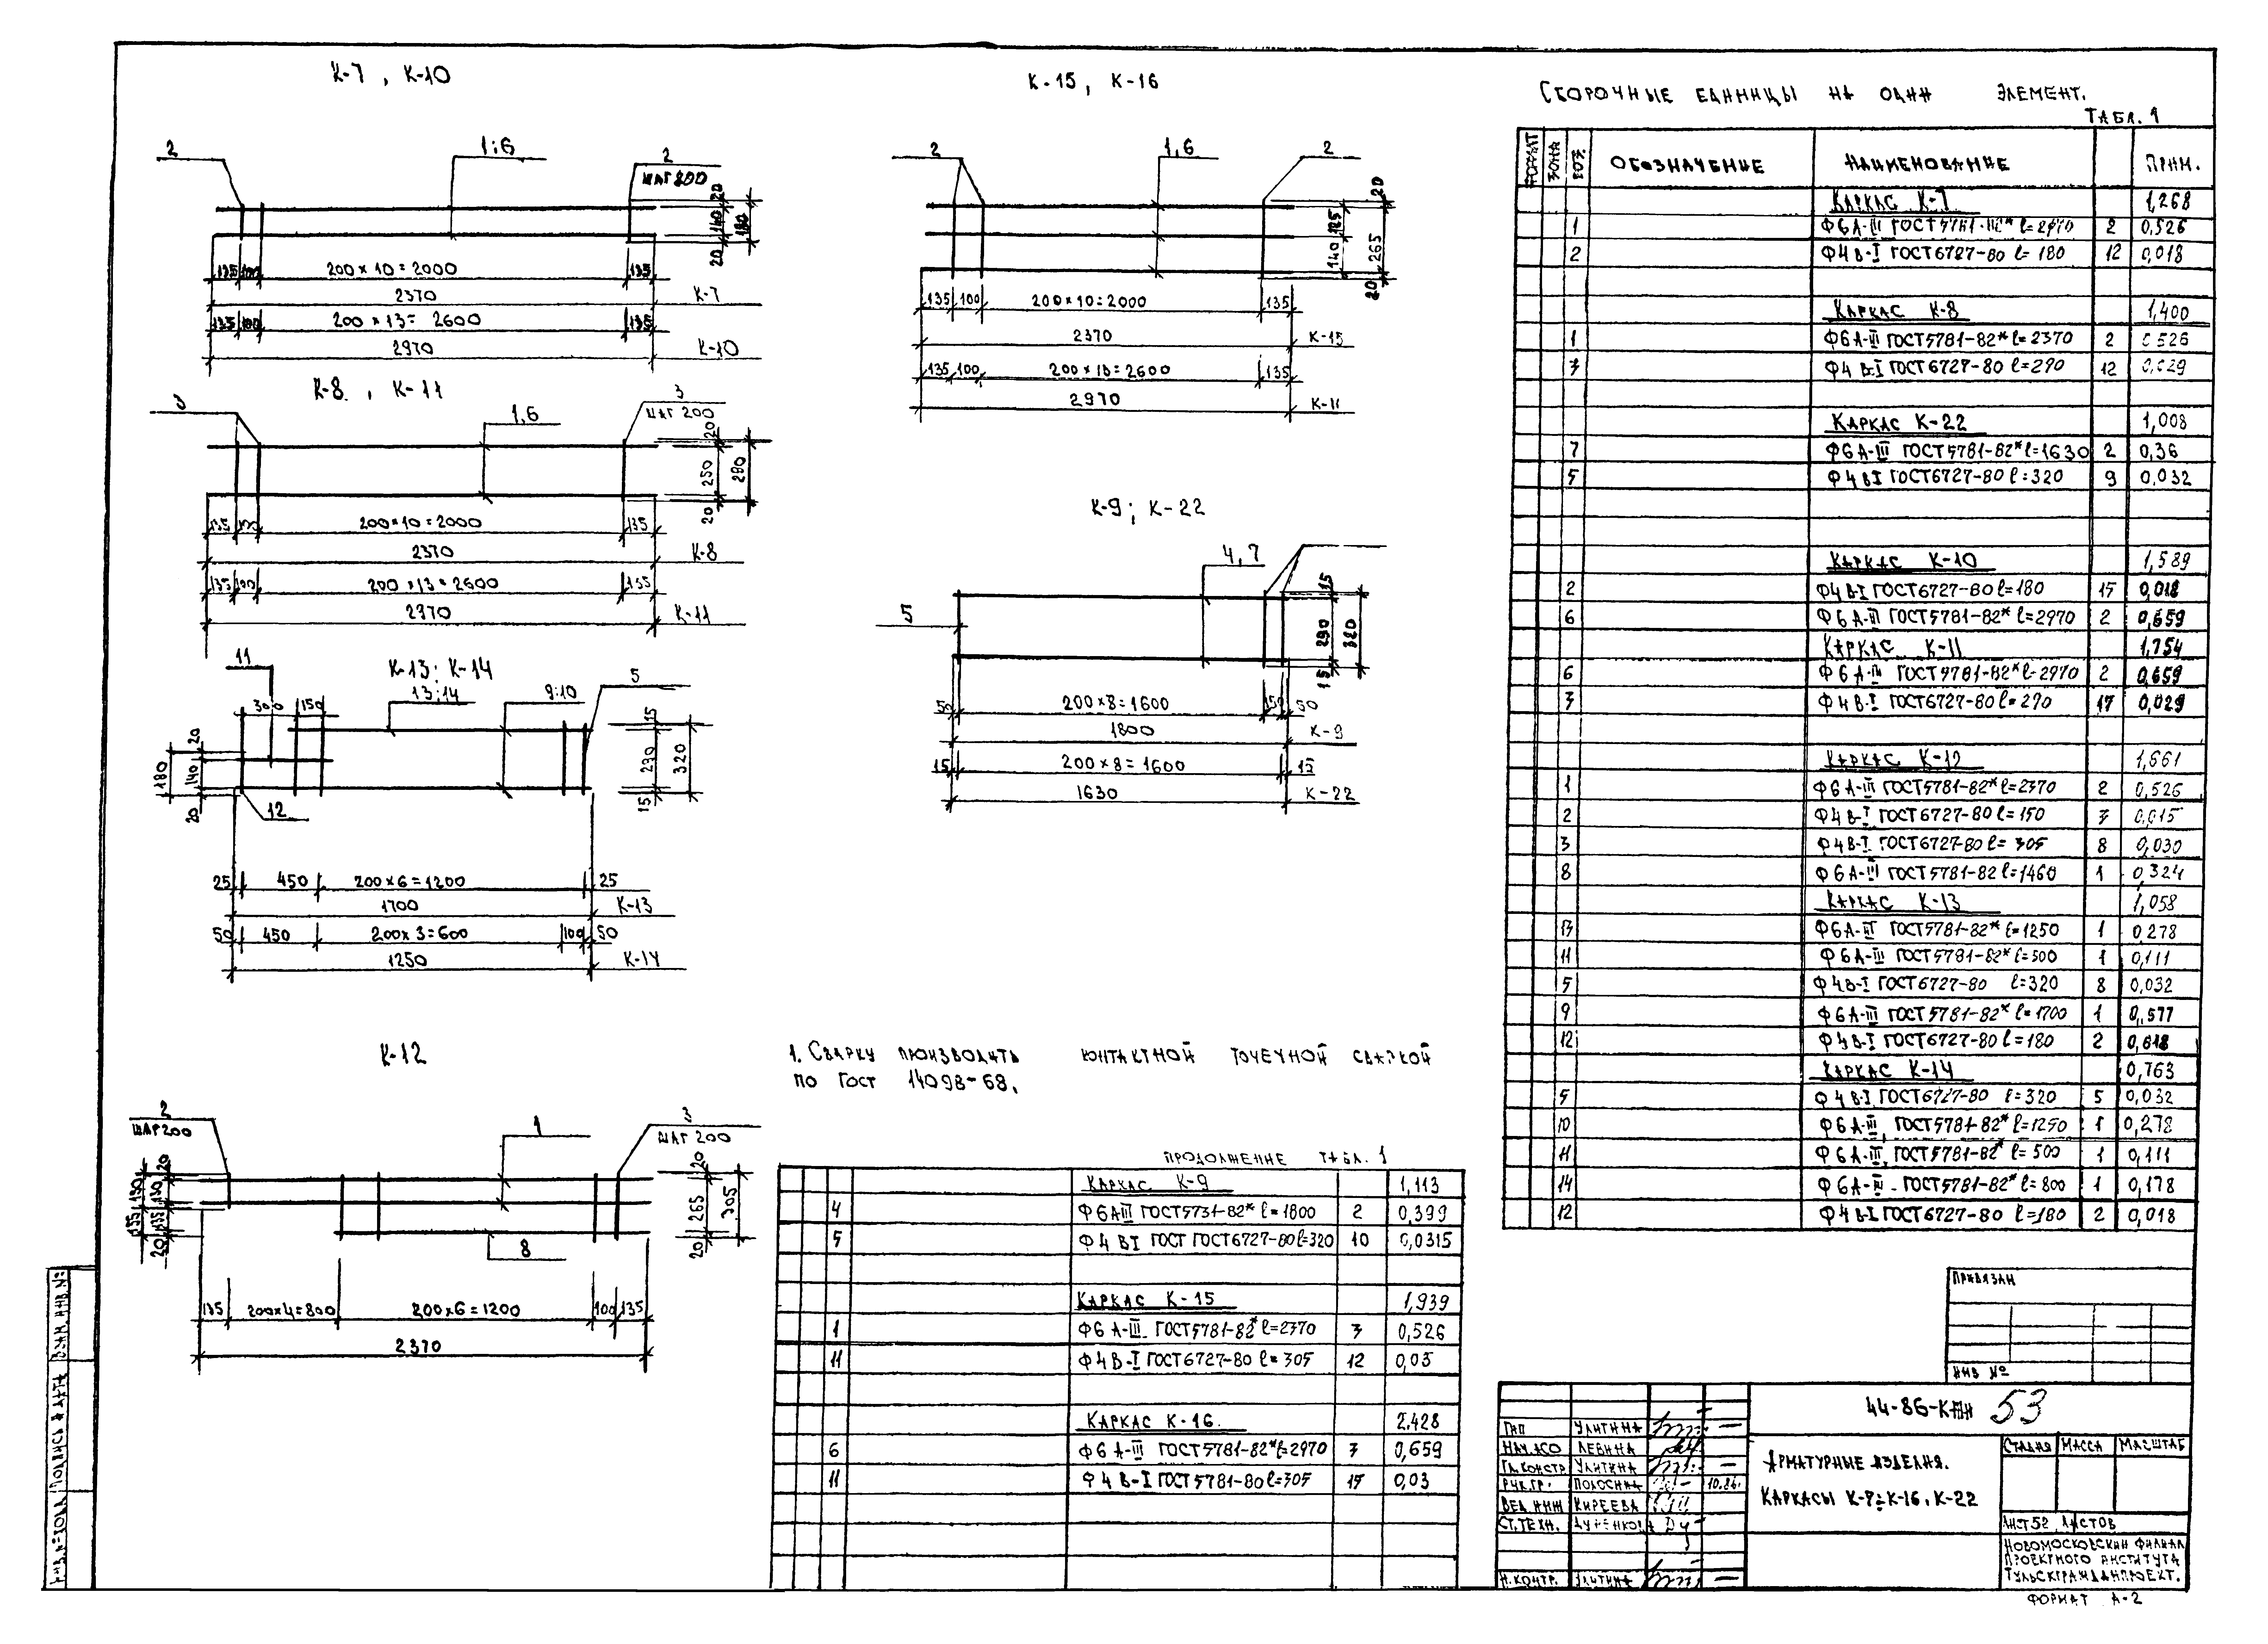 К-7 , К-10
2
1;6
2
ШАГ 200
20
140
180
20
135 100 200 × 10 = 2000 135
2370 К-7
135 100 200 × 13 = 2600 135
2970 К-10
К-8 , К-11
3
1,6
3
ШАГ 200
20
250
290
20
135 200×10=2000 135
2370 К-8
135 100 200×13=2600 135
2970 К-11
К-13; К-14
11
13;14
9;10
5
300 150
20
140
180
20
15
290
320
15
12
25 450 200×6=1200 25
1700 К-13
50 450 200×3=600 100 50
1250 К-14
К-12
2
ШАГ 200
1
3
ШАГ 200
20
130
135
20
20
265
305
20
8
135 200×4=800 200×6=1200 100 135
2370
К-15, К-16
2
1,6
2
20
125
140
265
20
135 100 200×10=2000 135
2370 К-15
135 100 200×13=2600 135
2970 К-11
К-9; К-22
4,7
5
15
290
320
15
50 200×8=1600 150 50
1800 К-9
15 200×8=1600 15
1630 К-22
1. СВАРКУ ПРОИЗВОДИТЬ КОНТАКТНОЙ ТОЧЕЧНОЙ СВАРКОЙ
ПО ГОСТ 14098-68.
ПРОДОЛЖЕНИЕ ТАБЛ. 1
КАРКАС К-9 1,113
4 Ф6АIII ГОСТ5731-82* ℓ=1800 2 0,399
5 Ф4 ВI ГОСТ ГОСТ6727-80 ℓ=320 10 0,0315
КАРКАС К-15 1,939
1 Ф6 А-III ГОСТ5781-82* ℓ=2370 3 0,526
11 Ф4В-I ГОСТ6727-80 ℓ=305 12 0,03
КАРКАС К-16 2,428
6 Ф6 А-III ГОСТ5781-82* ℓ=2970 3 0,659
11 Ф4 В-I ГОСТ5781-80 ℓ=305 15 0,03
СБОРОЧНЫЕ ЕДИНИЦЫ НА ОДИН ЭЛЕМЕНТ.
ТАБЛ. 1
ФОРМАТ ЗОНА ПОЗ. ОБОЗНАЧЕНИЕ НАИМЕНОВАНИЕ ПРИМ.
КАРКАС К-7 1,268
1 Ф6А-III ГОСТ5781-82* ℓ=2370 2 0,526
2 Ф4В-I ГОСТ6727-80 ℓ=180 12 0,018
КАРКАС К-8 1,400
1 Ф6А-III ГОСТ5781-82* ℓ=2370 2 0,526
3 Ф4 В-I ГОСТ6727-80 ℓ=290 12 0,029
КАРКАС К-22 1,008
7 Ф6А-III ГОСТ5781-82* ℓ=1630 2 0,36
5 Ф4ВI ГОСТ6727-80 ℓ=320 9 0,032
КАРКАС К-10 1,589
2 Ф4В-I ГОСТ6727-80 ℓ=180 15 0,018
6 Ф6А-III ГОСТ5781-82* ℓ=2970 2 0,659
КАРКАС К-11 1,754
6 Ф6А-III ГОСТ5781-82* ℓ=2970 2 0,659
3 Ф4В-I ГОСТ6727-80 ℓ=290 15 0,029
КАРКАС К-12 1,661
1 Ф6А-III ГОСТ5781-82* ℓ=2370 2 0,526
2 Ф4В-I ГОСТ6727-80 ℓ=150 3 0,015
3 Ф4В-I ГОСТ6727-80 ℓ=305 8 0,030
8 Ф6А-III ГОСТ5781-82 ℓ=1460 1 0,324
КАРКАС К-13 1,058
13 Ф6А-III ГОСТ5781-82* ℓ=1250 1 0,278
11 Ф6А-III ГОСТ5781-82* ℓ=500 1 0,111
5 Ф4В-I ГОСТ6727-80 ℓ=320 8 0,032
9 Ф6А-III ГОСТ5781-82* ℓ=1700 1 0,577
12 Ф4В-I ГОСТ6727-80 ℓ=180 2 0,018
КАРКАС К-14 0,763
5 Ф4В-I ГОСТ6727-80 ℓ=320 5 0,032
10 Ф6А-III ГОСТ5781-82* ℓ=1250 1 0,278
11 Ф6А-III ГОСТ5781-82* ℓ=500 1 0,111
14 Ф6А-III ГОСТ5781-82* ℓ=800 1 0,178
12 Ф4В-I ГОСТ6727-80 ℓ=180 2 0,018
ПРИВЯЗАН
ИНВ №
44-86-КЖИ 53
ГИП УЛИТИНА
НАЧ.АСО ЛЕВИНА
ГЛ.КОНСТР УЛИТИНА
РУК.ГР. 10.86.
ВЕД.ИНЖ КИРЕЕВА
СТ.ТЕХН.
Н.КОНТР. УЛИТИНА
АРМАТУРНЫЕ ИЗДЕЛИЯ.
КАРКАСЫ К-7÷К-16, К-22
СТАДИЯ МАССА МАСШТАБ
ЛИСТ 52 ЛИСТОВ
НОВОМОСКОВСКИЙ ФИЛИАЛ
ПРОЕКТНОГО ИНСТИТУТА
ТУЛЬСКГРАЖДАНПРОЕКТ.
ФОРМАТ А-2
ИНВ.№ПОДЛ ПОДПИСЬ И ДАТА ВЗАМ.ИНВ.№